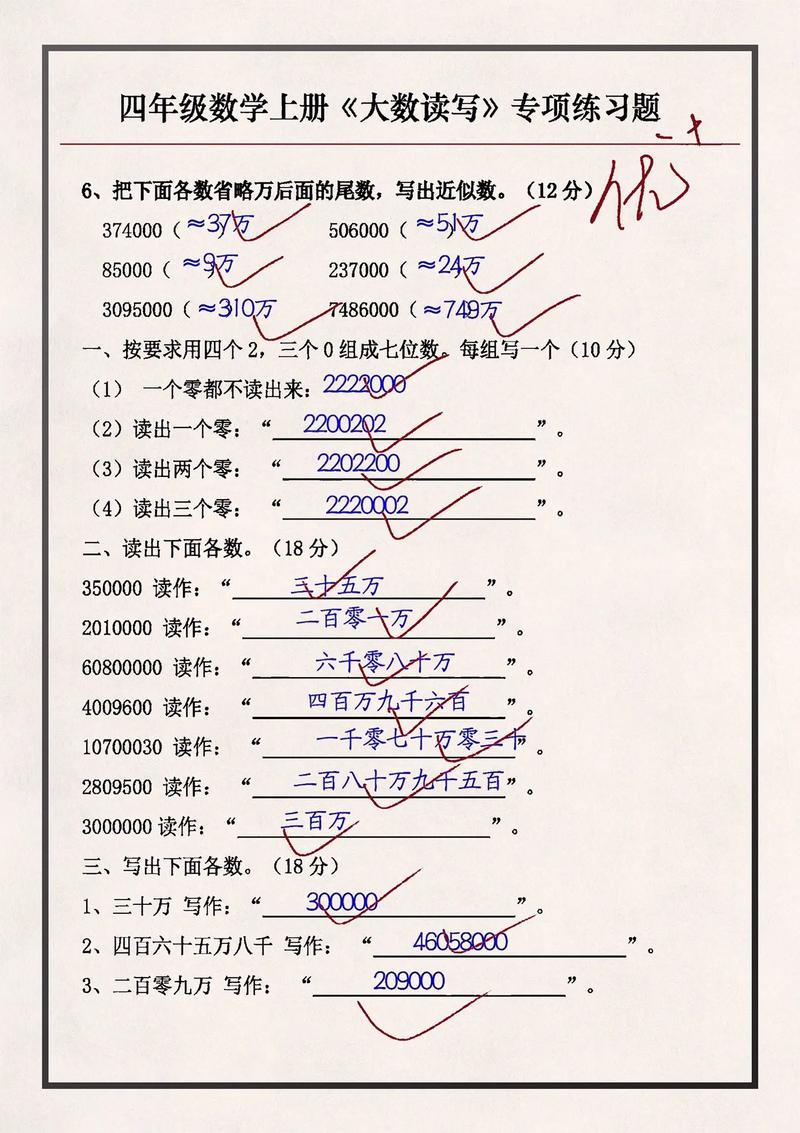 四年级数学上册《大数读写》专项练习题
优
6、把下面各数省略万后面的尾数，写出近似数。（12分）
374000（≈37万） 506000（≈51万）
85000（≈9万 237000（≈24万
3095000（≈310万 7486000（≈749万
一、按要求用四个2，三个0组成七位数。每组写一个（10分）
（1） 一个零都不读出来：2222000
（2）读出一个零：“2200202”。
（3）读出两个零： “2202200”。
（4）读出三个零： “2220002”。
二、读出下面各数。（18分）
350000 读作：“三十五万”。
2010000 读作：“二百零一万”。
60800000 读作：“六千零八十万”。
4009600 读作： “四百万九千六百”。
10700030 读作： “一千零七十万零三十”。
2809500 读作： “二百八十万九千五百”。
3000000读作：“三百万”。
三、写出下面各数。（18分）
1、三十万 写作：“300000”。
2、四百六十五万八千 写作： “46058000”。
3、二百零九万 写作： “209000”。